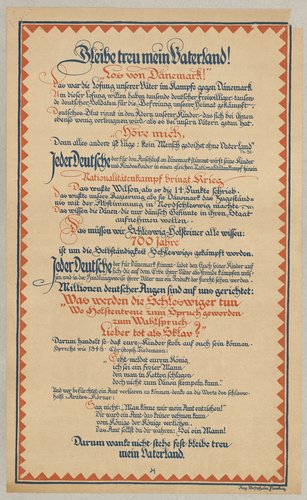 Bleibe treu mein Vaterland!
„Los von Dänemark!"
Das war die Losung unserer Väter im Kampfe gegen Dänemark
Um dieser Losung willen haben tausende deutscher Freiwilliger-tausende deutscher Soldaten für die Befreiung unserer Heimat gekämpft-
Deutsches Blut rinnt in den Adern unserer Kinder-das sich bei ihnen
ebenso wenig verleugnen wird-als es bei unsern Vätern getan hat.
Höre mich,
Denn alles andere ist Lüge: Kein Mensch gedeihet ohne Vaterland
Jeder Deutsche der für den Anschluß an Dänemark stimmt wirft seine Kinder
und Kindeskinder in einen gleichen Nationalitätenkampf hinein
Nationalitätenkampf bringt Krieg
Das wußte Wilson, als er die 14 Punkte schrieb-
Das wußte unsere Regierung als sie Dänemark das Zugeständnis
mit der Abstimmung in Nordschleswig machte-
Das wissen die Dänen-die nur dänisch Gesinnte in ihren Staat
aufnehmen wollen.
Das müssen wir Schleswig-Holsteiner alle wissen:
700 Jahre
ist um die Selbständigkeit Schleswigs gekämpft worden
Jeder Deutsche der für Dänemark stimmt-ladet den Fluch seiner Kinder auf
sich die auf dem Erbe ihrer Väter als Fremde kämpfen müssen
und in der Familiengeschichte ihrer Väter nur mit Andacht der
Millionen deutscher Augen sind auf uns gerichtet:
„Was werden die Schleswiger tun
Wo Holstentreue zum Spruch geworden
zum Wahlspruch
Lieber tot als Sklav?"
Darum handelt so daß eure Kinder stolz auf euch sein können
Spreche wie 1848 Christoph Tiedemann:
„Geht-meldet eurem König
ich sei ein freier Mann
den man in Ketten schlagen
doch nicht zum Dänen stempeln kann."
Und wer befürchtet ein Amt verlieren zu können-denke an die Worte des schleswig-
holst. Arztes Körner:
Sag nicht: „Man könnte mir mein Amt entziehen!
Dir ward ein Amt-das keiner nehmen kann
vom Könige der Könige verliehen.
Das Amt sollst du dir wahren: Sei ein Mann!
Darum wanke nicht stehe fest-bleibe treu
mein Vaterland.